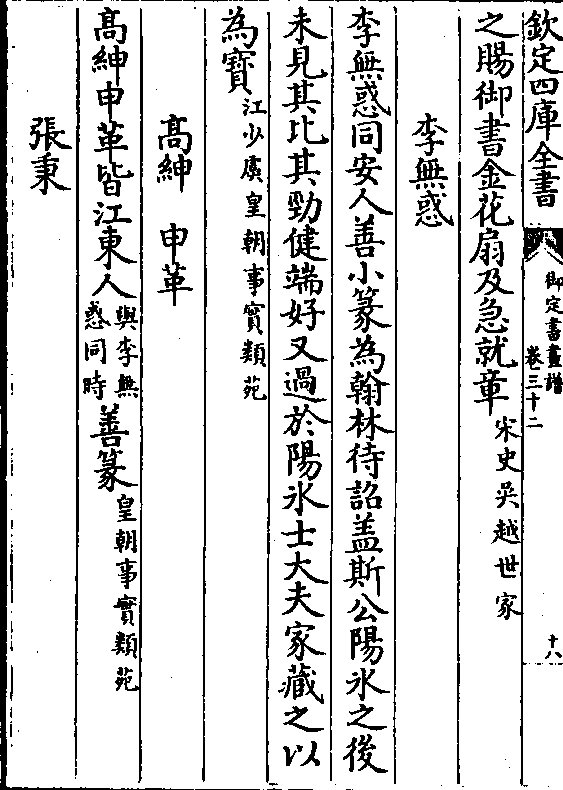 欽定四庫全書
御定書畫譜
卷三十二
十八
之賜御書金花扇及急就章宋史吳越世家
李無惑
李無惑同安人善小篆為翰林待詔盖斯公陽氷之後
未見其比其勁健端好又過於陽氷士大夫家藏之以
為寶江少虞皇朝事實類苑
高紳 申革
高紳申革皆江東人與李無惑同時善篆皇朝事實類苑
張秉